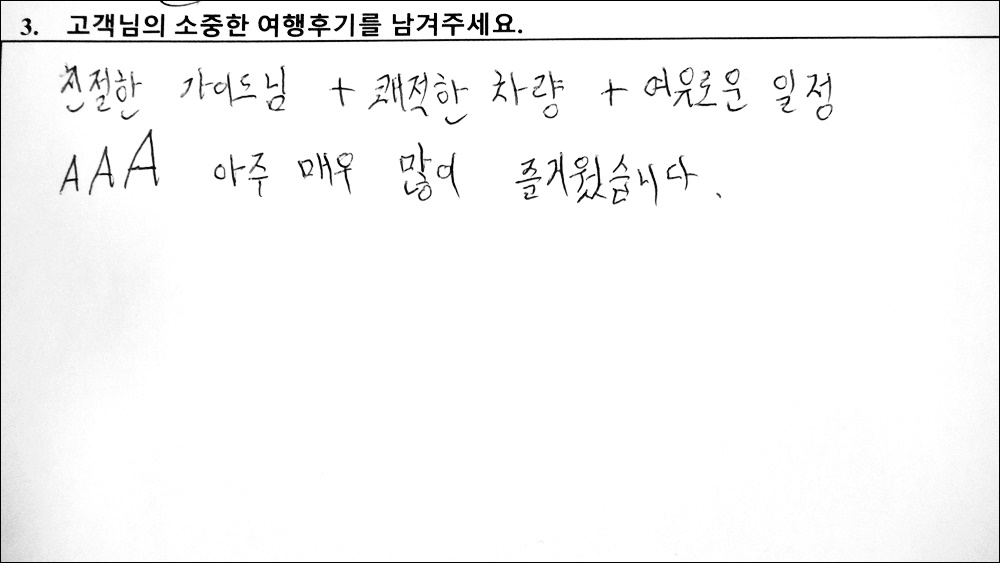 3. 고객님의 소중한 여행후기를 남겨주세요.
친절한 가이드님 + 쾌적한 차량 + 여유로운 일정
AAA 아주 매우 많이 즐거웠습니다.